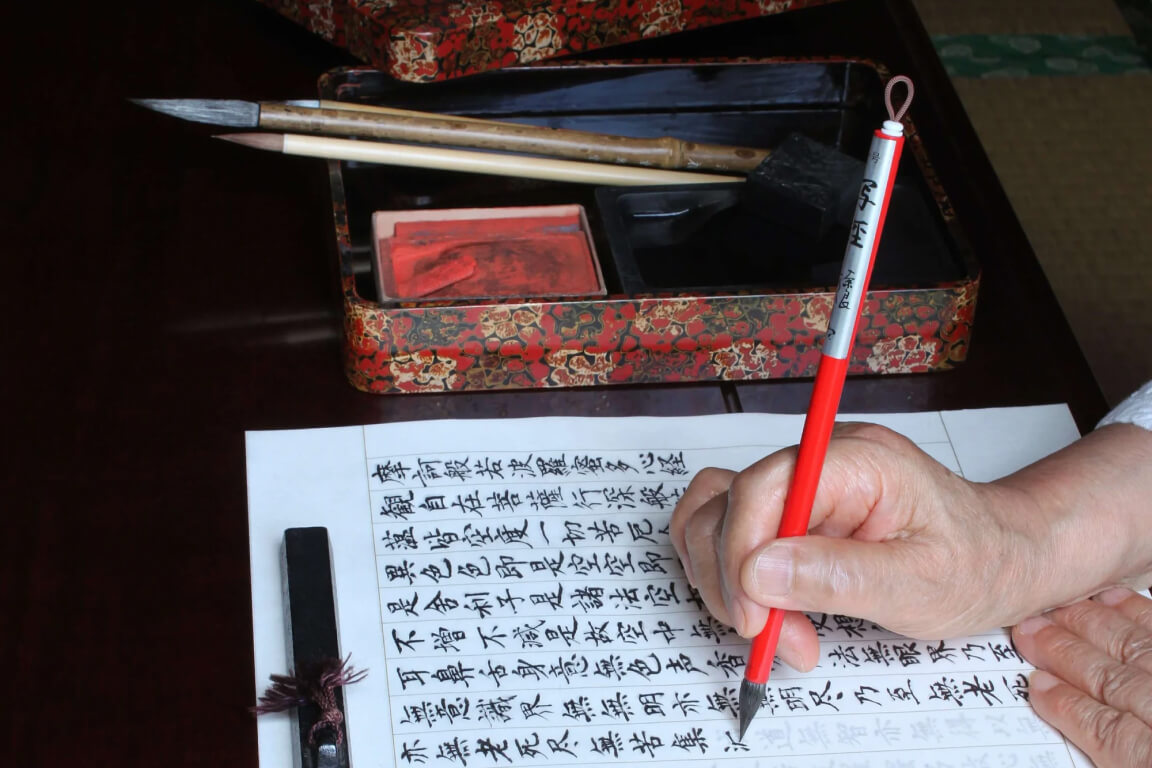 摩訶般若波羅蜜多心経
観自在菩薩行深般
蘊皆空度一切苦厄
異色色即是空空即
是舎利子是諸法空
不増不減是故空中無 想
耳鼻舌身意無色声香 法無眼界乃至
無意識界無無明亦無無明尽乃至無老死
亦無老死尽無苦集 道無智亦無得以無